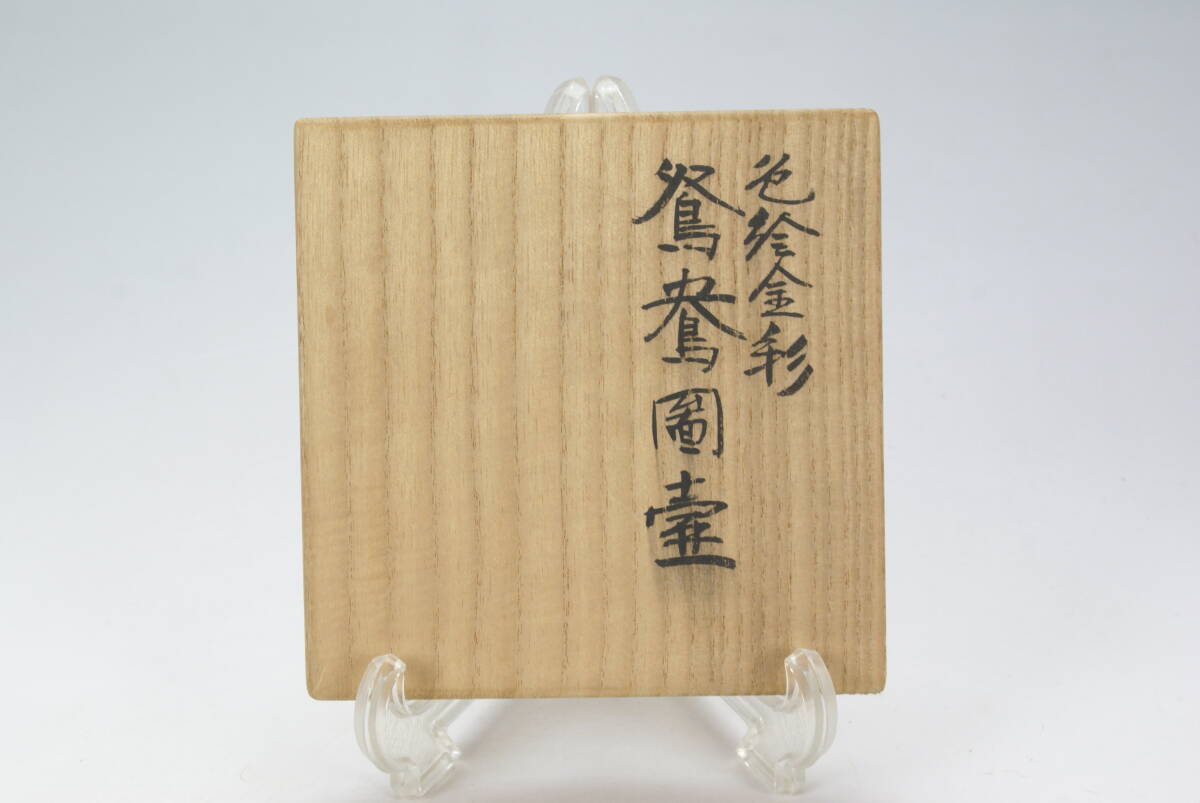 色絵金彩
鴛鴦圖壷